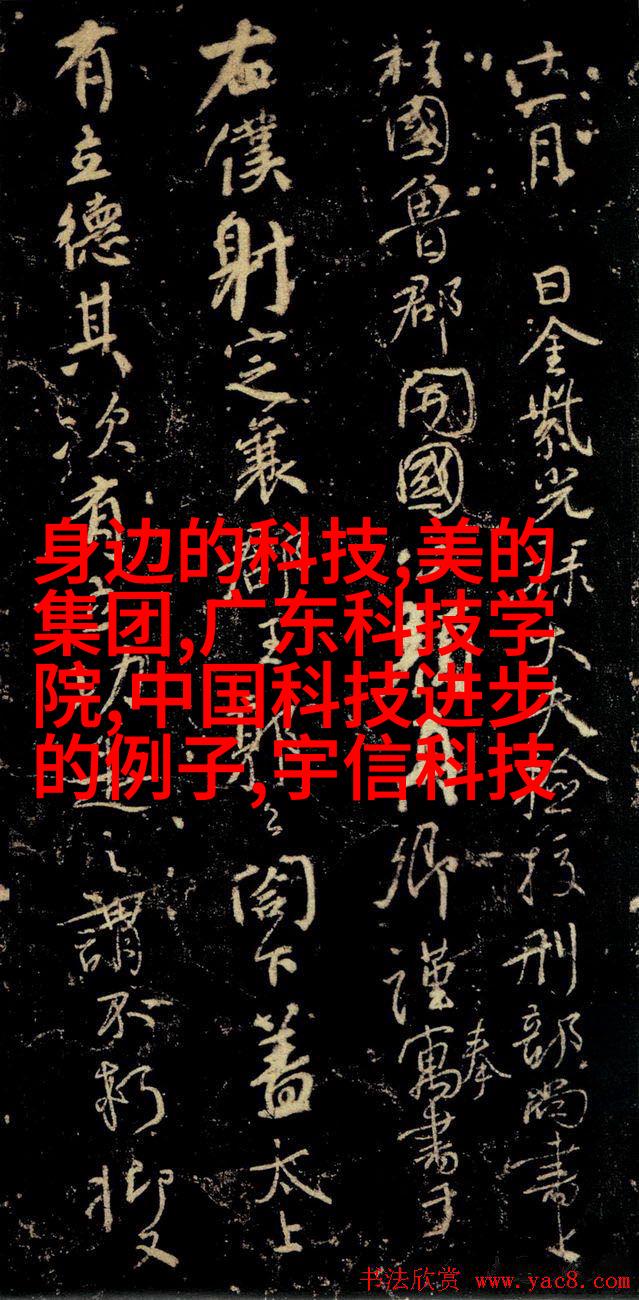 十一月 日金紫光祿大夫檢校刑部尚書上
柱國魯郡開國卿謹奉寓書于
右僕射定襄郡王閤下蓋太上
有立德其次有之謂不朽抑又
身边的科技,美的
集团,广东科技学
院,中国科技进步
的例子,宇信科技
书法欣赏 www.yac8.com